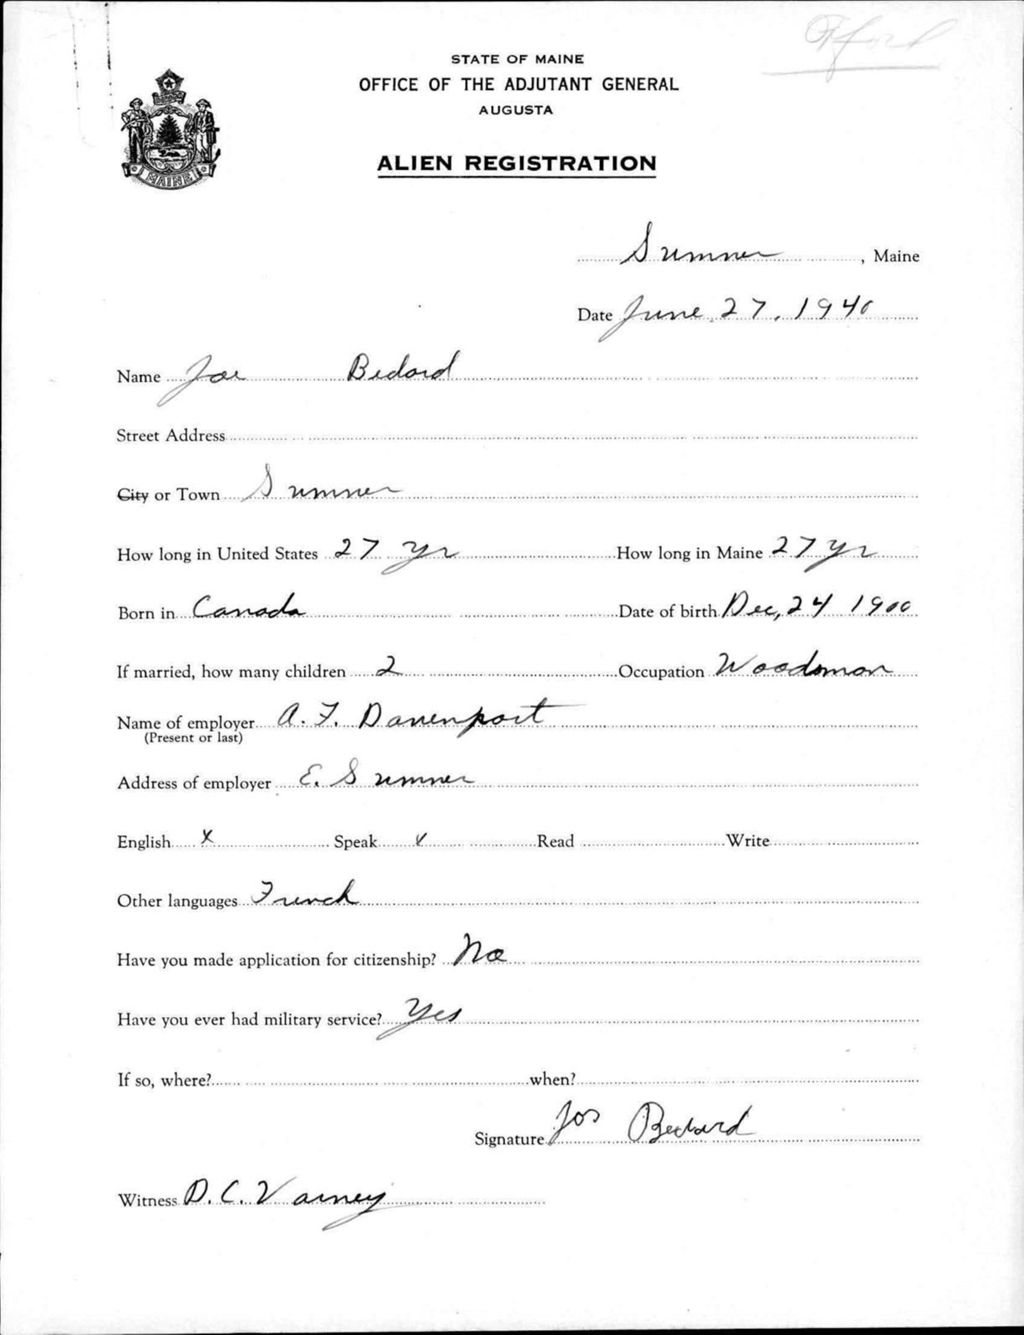 STATE OF MAINE
OFFICE OF THE ADJUTANT GENERAL
AUGUSTA
ALIEN REGISTRATION
MAINE
Sumner, Maine
Date June 27, 1940
Name Joe Bedard
Street Address
City or Town Sumner
How long in United States 27 yr How long in Maine 27 yr
Born in Canada Date of birth Dec, 24 1900
If married, how many children 2 Occupation Woodsman
Name of employer A. F. Davenport
(Present or last)
Address of employer E. Sumner
English x Speak v Read Write
Other languages French
Have you made application for citizenship? No
Have you ever had military service? Yes
If so, where? when?
Signature Jos Bedard
Witness D. C. Varney